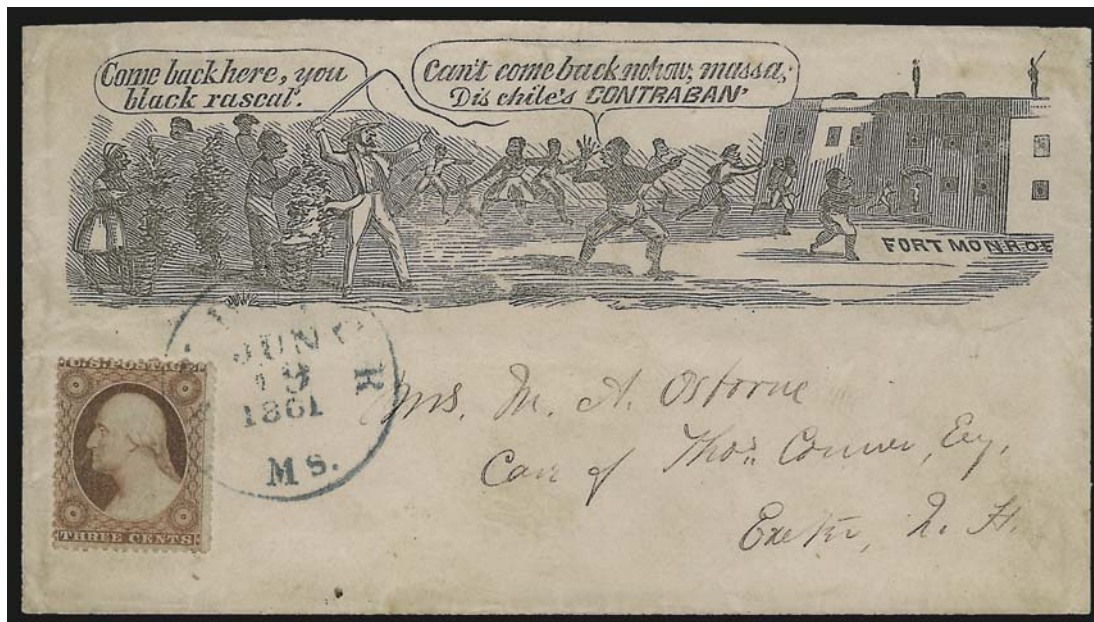 Come back here, you
black rascal.
Can't come back nohow, massa;
Dis chile's CONTRABAN'
FORT MONROE
JUN
19
1861
R
Ms.
U.S. POSTAGE
THREE CENTS
Mrs. M. A. Osborne
Care of Thos. Conner, Esq.
Exeter, N. H.